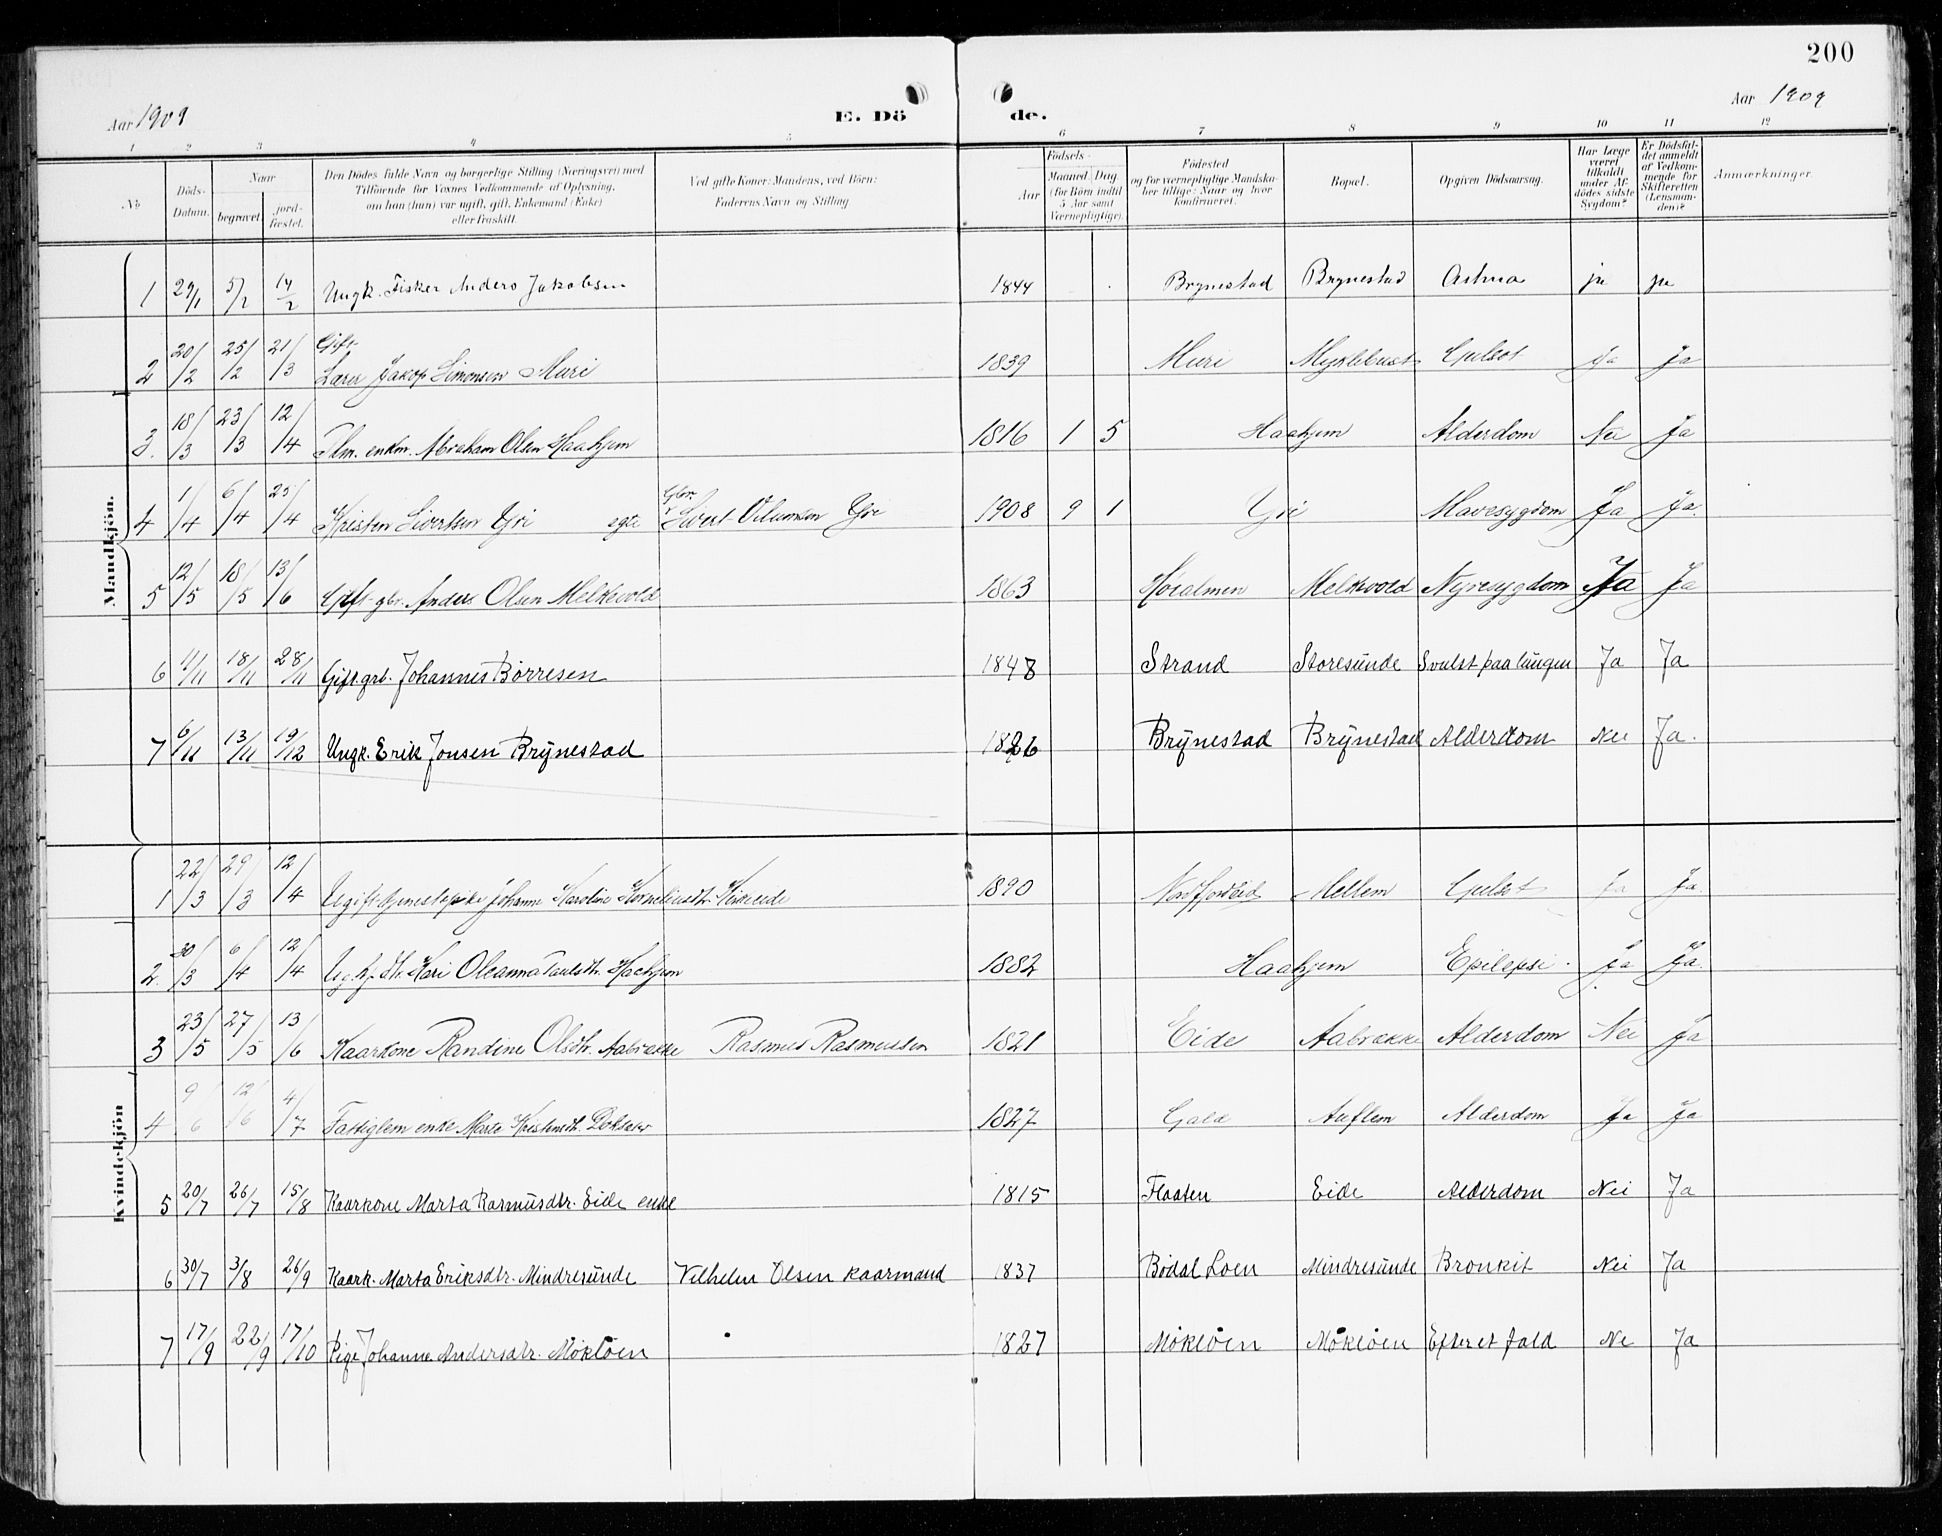 200
Aar 1909 E. Dö de. Aar 1909
1 2 3 4 5 6 7 8 9 10 11 12
No
Döds-Datum.
Naar
begravet.
jordfæstet.
Den Dödes fulde Navn og borgerlige Stilling (Næringsvei) med
Tilföiende for Voxnes Vedkommende af Oplysning,
om han (hun) var ugift, gift, Enkemand (Enke)
eller fraskilt.
Ved gifte Koner: Mandens, ved Börn:
Faderens Navn og Stilling
Födsels-
Aar
Maaned. Dag.
(for Börn indtil
5 Aar samt
Værnepligtige).
Födested
og for værnepligtige Mandska-
ber tillige: Naar og hvor
konfirmeret.
Bopæl.
Opgiven Dödsaarsag.
Har Læge
været
tilkaldt
under Af-
dödes sidste
Sygdom?
Er Dödsfal-
det anmeldt
af Vedkom-
mende for
Skifteretten
(Lensman-
den)?
Anmærkninger.
Mandkjön.
1 29/1 5/2 14/2 Ungk. Fisker Anders Jakobsen 1844 Brynestad Brynestad Astma ja ja
2 20/2 25/2 21/3 Gift Lærer Jakop Simonsen Muri 1839 Muri Myklebust Ja Ja
3. 18/3 23/3 12/4 Flm. enkm. Abraham Olsen Haahjem 1816 1 5 Haahjem Alderdom Nei Ja
4 1/4 6/4 25/4 Kristen Sivertsen Yri egte Gbr. Sivert Yri 1908 9 1 Yri Mavesygdom Ja Ja.
5 12/5 18/5 13/6 Gift gbr. Anders Olsen Melkevold 1863 Melkevold Nyresygdom Ja Ja
6 11/11 18/11 28/11 Gift.grb. Johannes Børresen 1848 Strand Storesunde Svulst paa lungen Ja Ja
7 6/11 13/11 19/12 Ungk. Erik Jonsen Brynestad 1826 Brynestad Brynestad Alderdom Nei Ja.
Kvindekjön
1 22/3 29/3 12/4 Ugift tjenestepike Johanne Karoline Korneliusdtr. Kirkeeide 1890 Nordfjordeid Mellem Ja Ja
2. 30/3 6/4 12/4 Kari Oleanna Paulsdtr. Haahjem 1882 Haahjem Epilepsi. Ja Ja.
3 23/5 27/5 13/6 Kaarkone Randine Olsdtr. Aabrække Rasmus Rasmussen 1821 Eide Aabrække Alderdom Nei Ja
4 9/6 12/6 4/7 Fattiglem enke Marte 1827 Gald Auflem Alderdom Ja Ja
5 20/7 26/7 15/8 Kaarkone Marta Rasmusdtr. Eide enke 1815 Flaaten Eide Alderdom Nei Ja
6 30/7 3/8 26/9 Kaark. Marta Eriksdtr. Mindresunde Vilhelm Olsen kaarmand 1837 Bødal Loen Mindresunde Bronkit Nei Ja
7 17/9 22/9 17/10 Pige Johanne Andersdtr. Mökløen 1827 Mökløen Mökløen Efter et fald Ne Ja